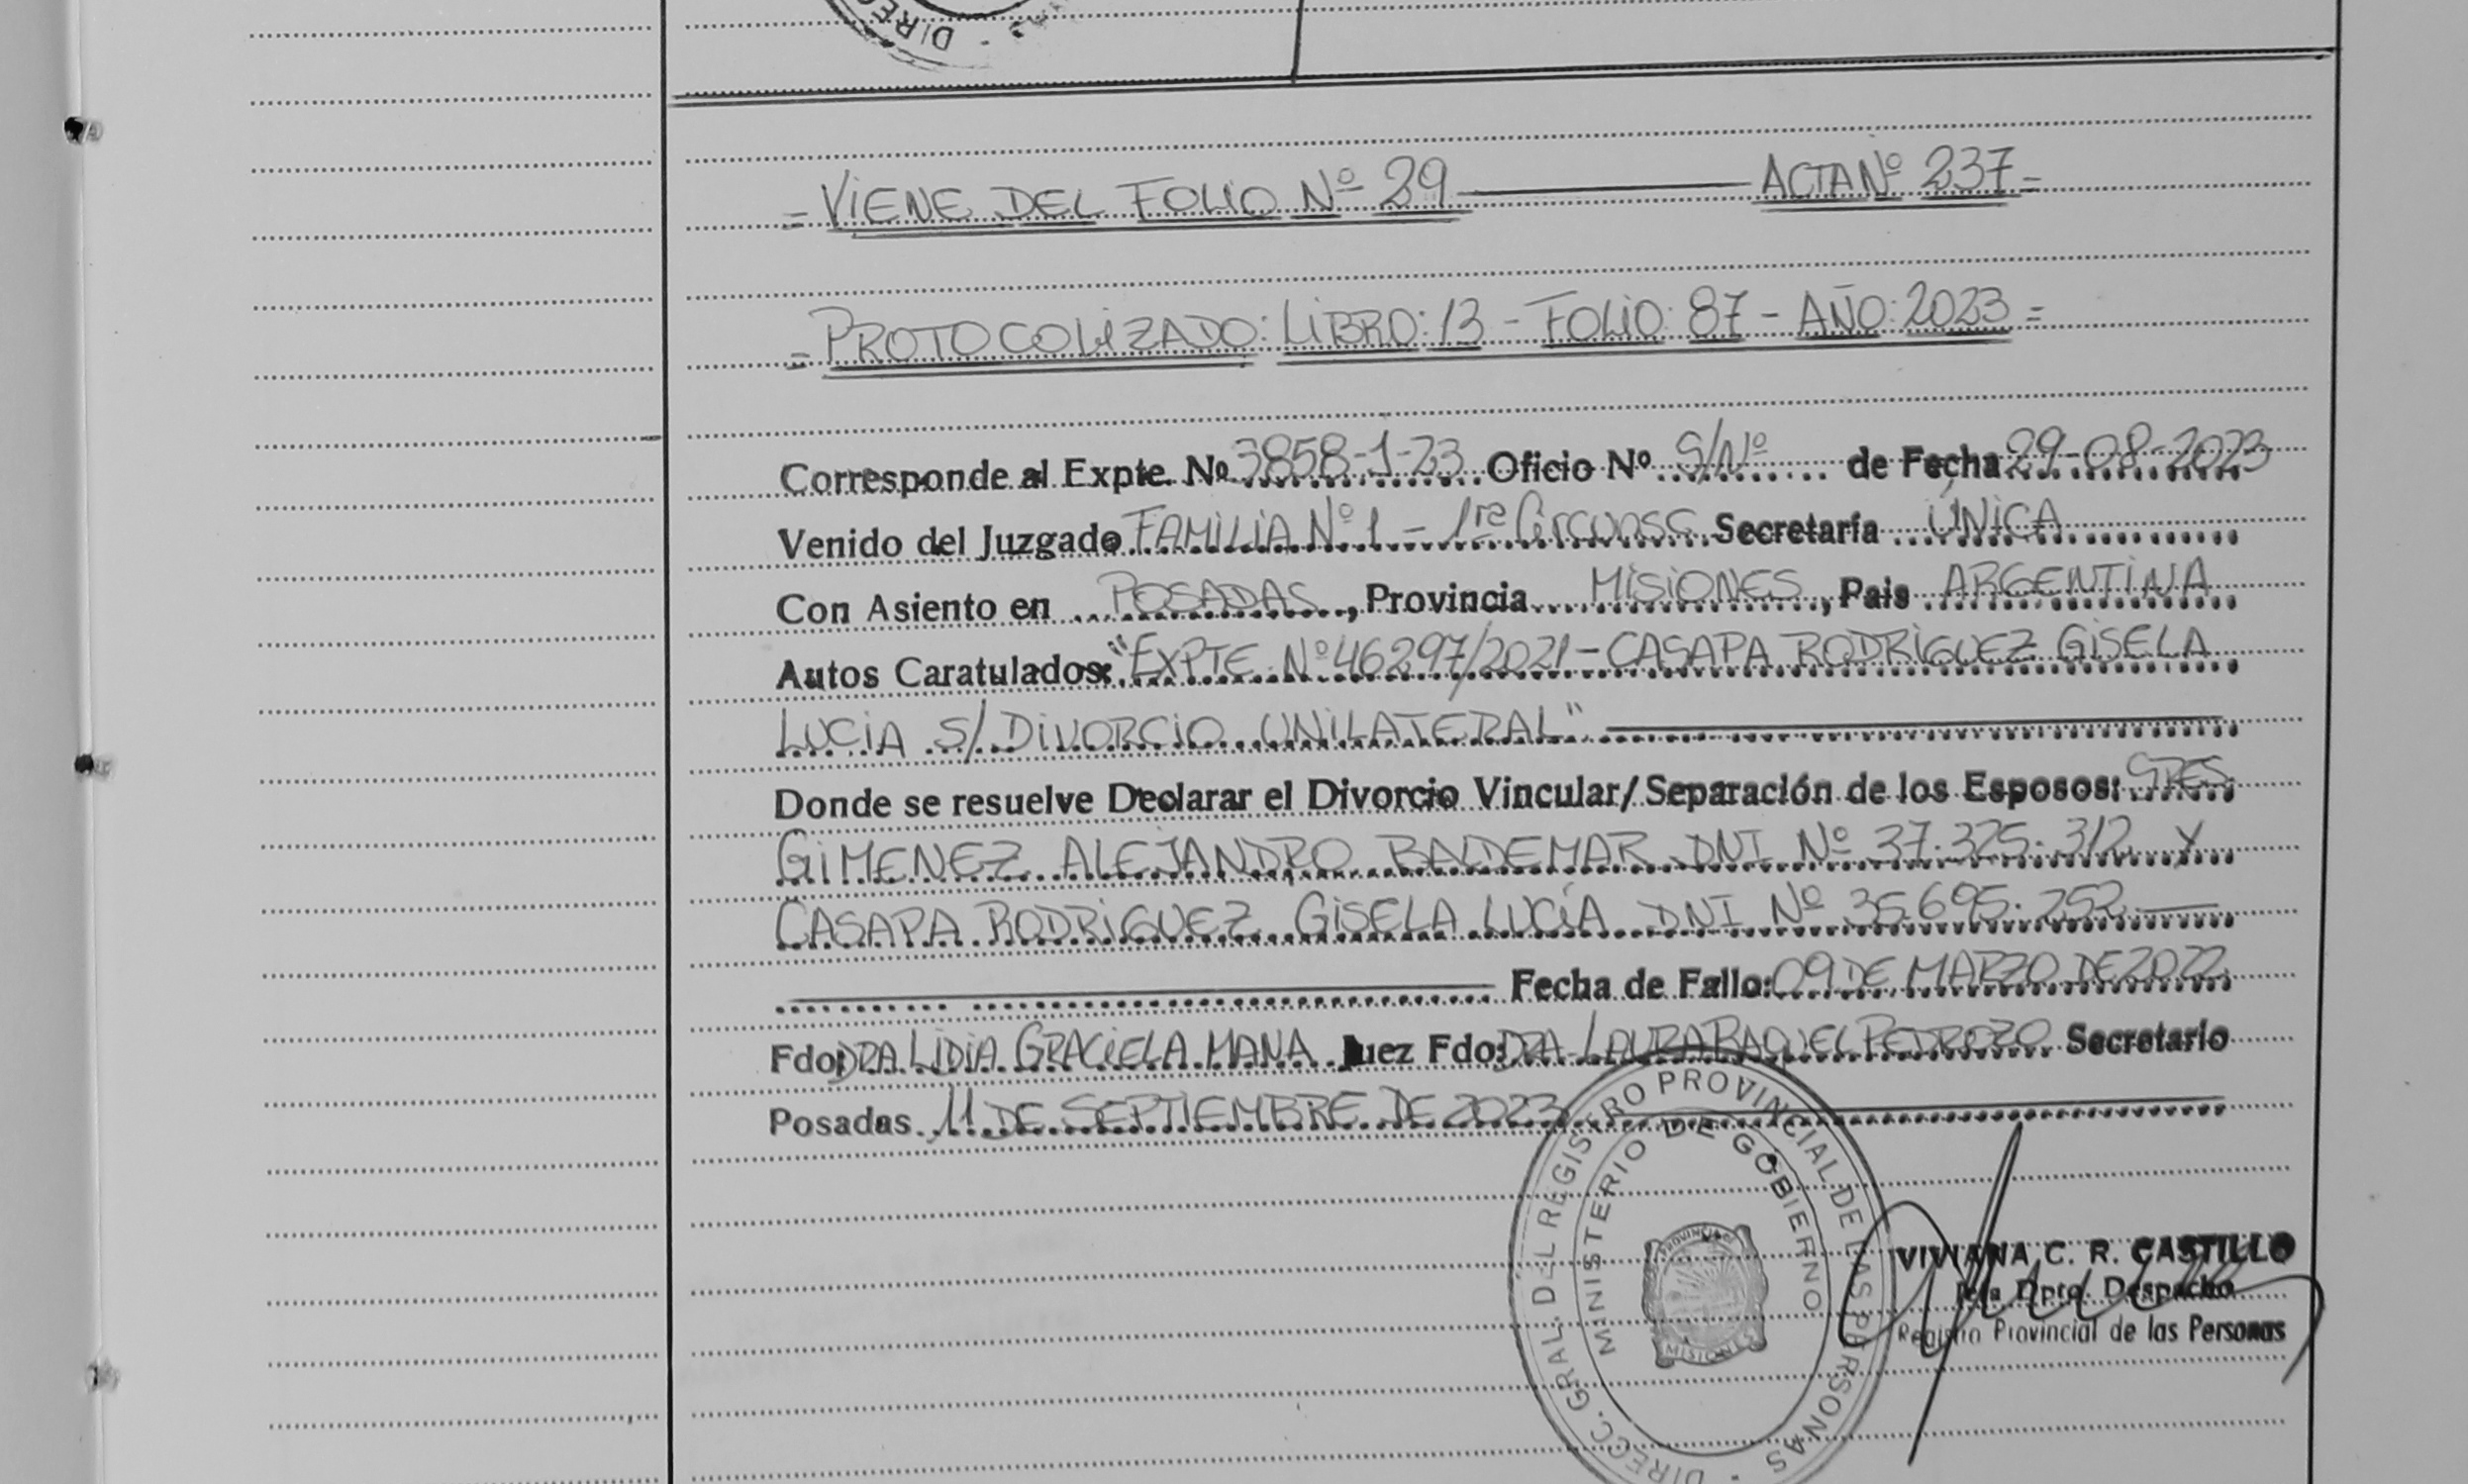 DIREC
= VIENE DEL FOLIO Nº 29 ACTA Nº 237 =
= PROTOCOLIZADO: LIBRO: 13 - FOLIO: 87 - AÑO: 2023 =
Corresponde al Expte. Nº 3858-1-23 Oficio Nº S/Nº de Fecha 29-08-2023
Venido del Juzgado FAMILIA Nº 1 - 1ra Circunsc Secretaría ÚNICA
Con Asiento en POSADAS, Provincia MISIONES, Pais ARGENTINA
Autos Caratulados: "EXPTE Nº 46297/2021 - CASAPA RODRÍGUEZ GISELA
LUCIA S/ DIVORCIO UNILATERAL"
Donde se resuelve Declarar el Divorcio Vincular/Separación de los Esposos: SRES
GIMENEZ ALEJANDRO BALDEMAR DNI Nº 37.325.312 Y
CASAPA RODRÍGUEZ GISELA LUCÍA DNI Nº 35.695.252
Fecha de Fallo: 09 DE MARZO DE 2022
Fdo: DRA LIDIA GRACIELA MANA Juez Fdo: DRA LAURA RAQUEL PEDROZO Secretario
Posadas 11 DE SEPTIEMBRE DE 2023
DIRECC. GRAL. DEL REGISTRO PROVINCIAL DE LAS PERSONAS -
MINISTERIO DE GOBIERNO
PROVINCIA DE
MISIONES
VIVIANA C. R. CASTILLO
Jefa Dpto. Despacho
Registro Provincial de las Personas